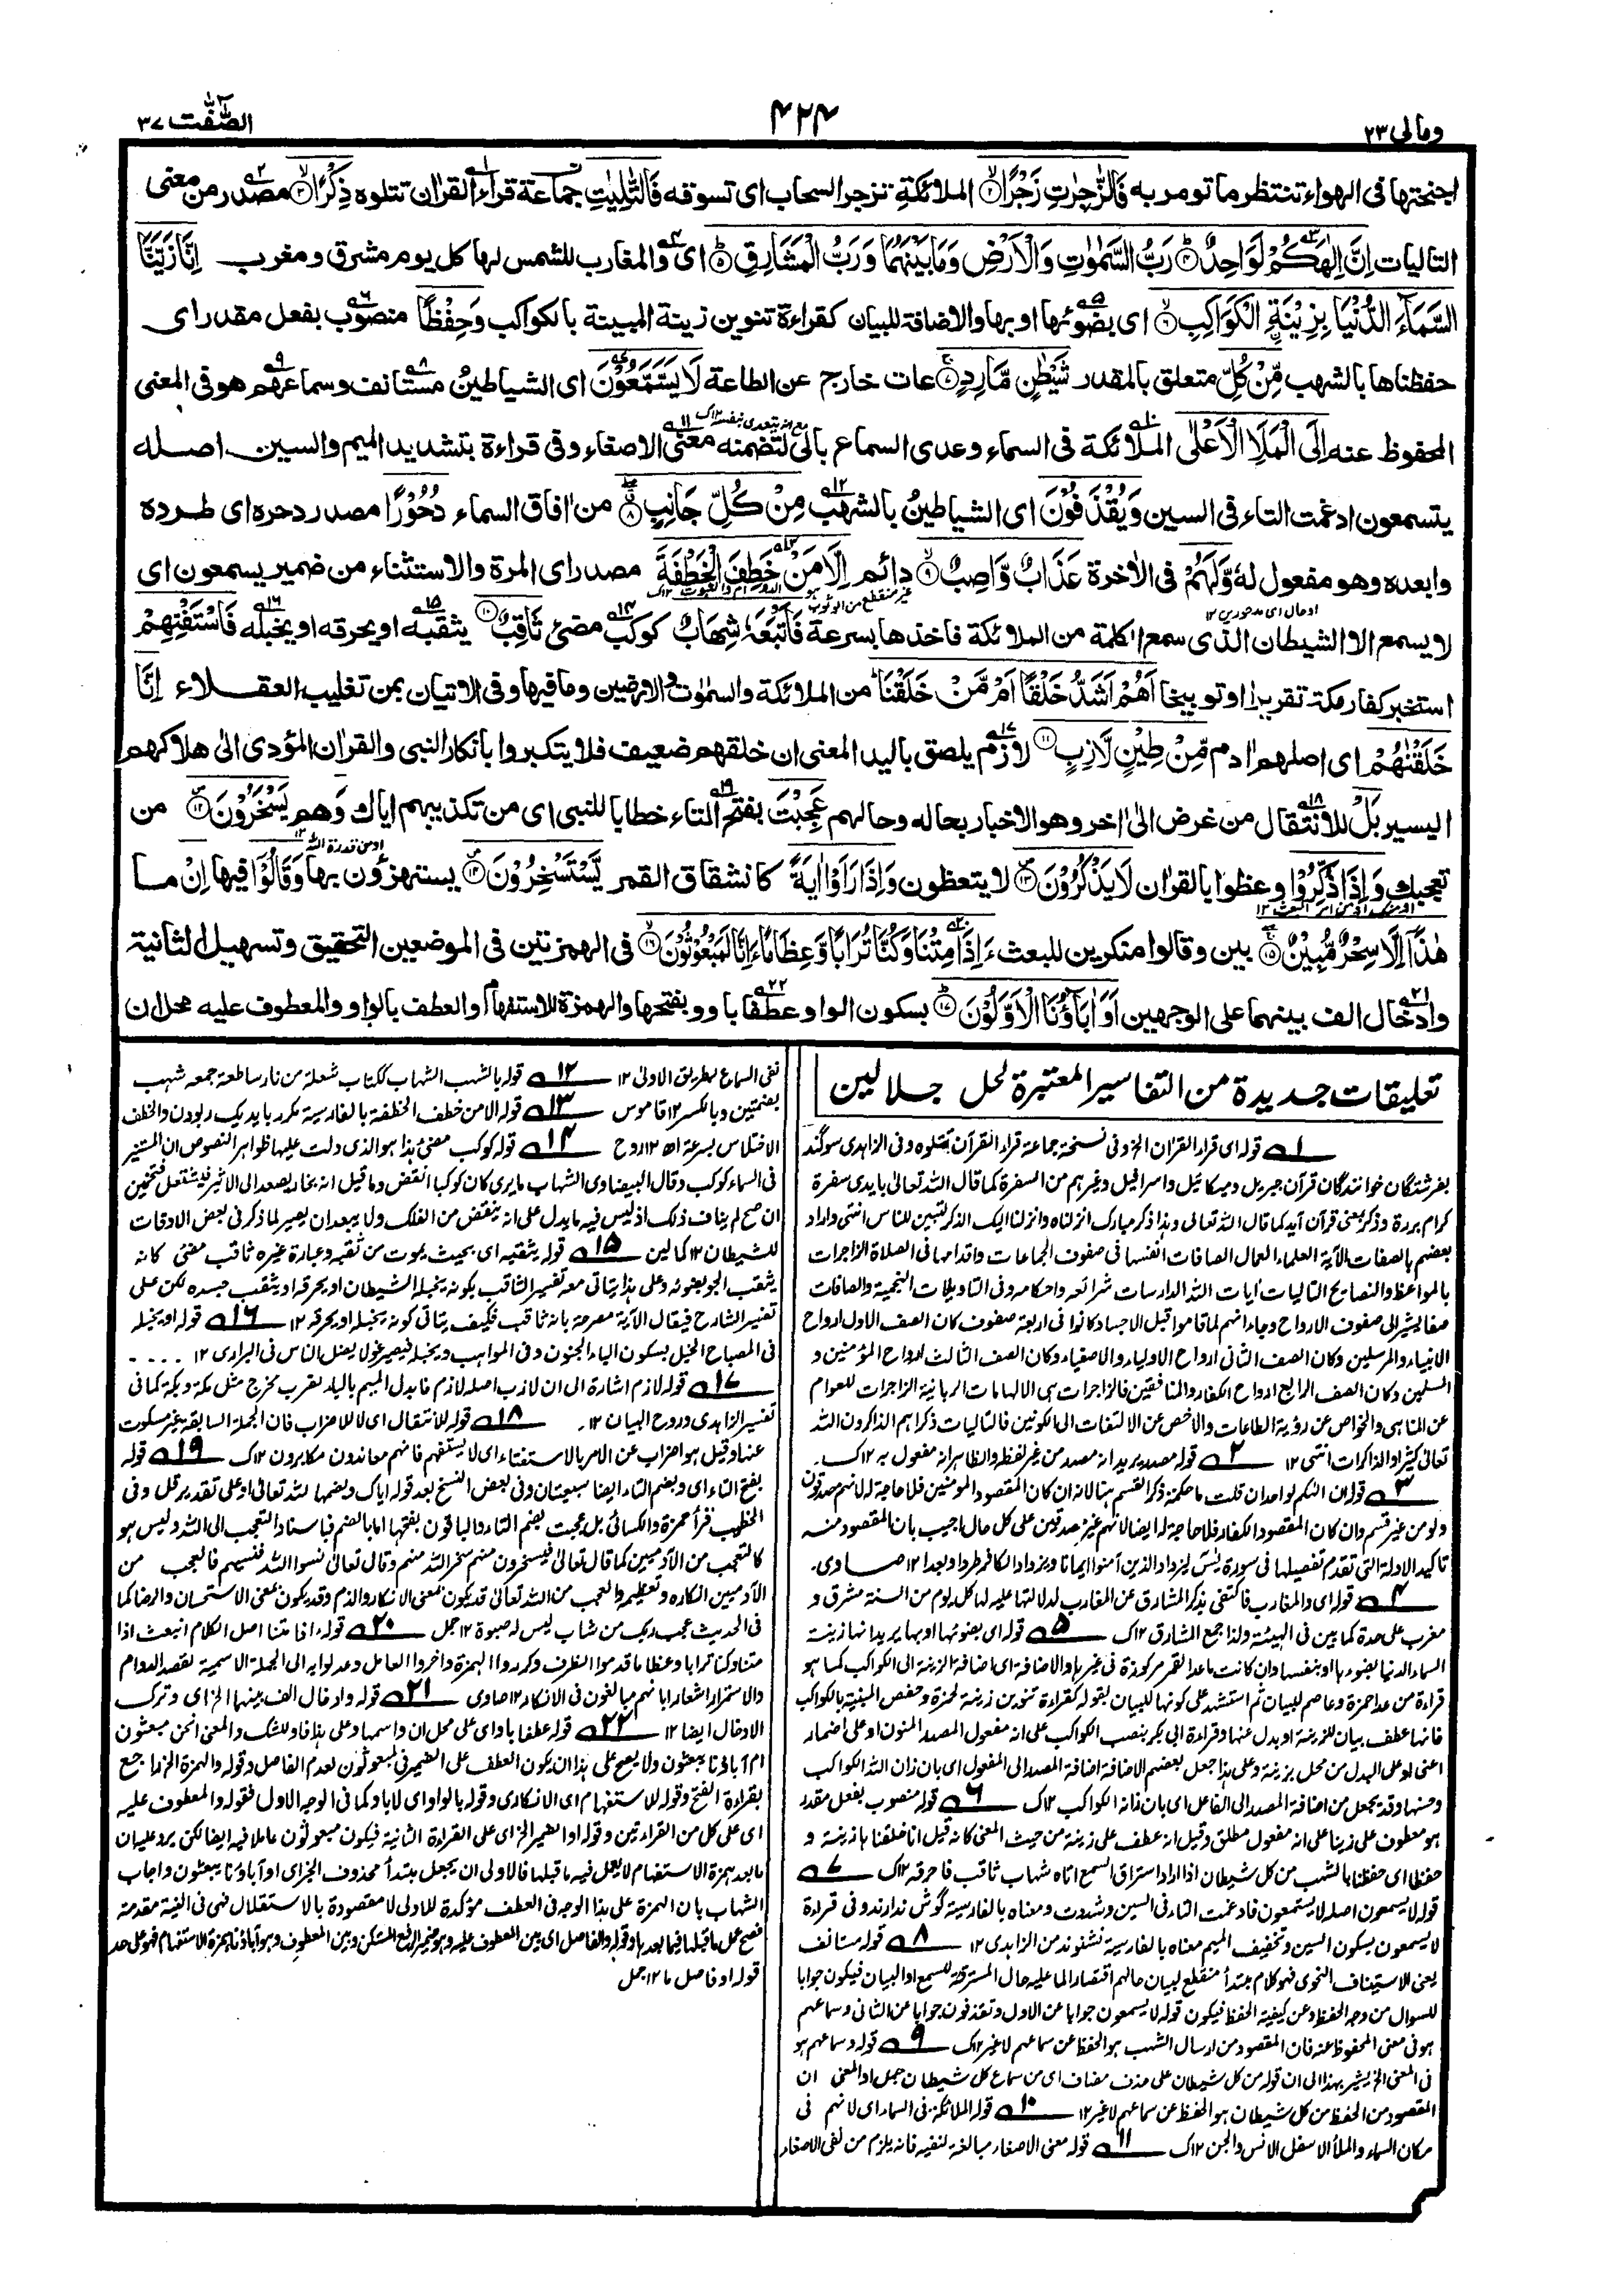 ومالی ٢٣
٤٢٤
الصّٰٓفّٰت ٣٧
اجنحتها فى الهواء تنتظر ما تومر به فَالزّٰجِرٰتِ زَجْرًا ۙ۝٢ الملائكة تزجر السحاب اى تسوقه فَالتّٰلِيٰتِ جماعة قراء القراٰن تتلوه ذِكْرًا ۙ۝٣ مصدر من معنى
التاليات اِنَّ اِلٰهَكُمْ لَوَاحِدٌ ۝٤ رَبُّ السَّمٰوٰتِ وَالْاَرْضِ وَمَا بَيْنَهُمَا وَرَبُّ الْمَشَارِقِ ۝٥ اى والمغارب للشمس لها كل يوم مشرق ومغرب اِنَّا زَيَّنَّا
السَّمَآءَ الدُّنْيَا بِزِيْنَةِ الْكَوَاكِبِ ۙ۝٦ اى بضوئها او بها والاضافة للبيان كقراءة تنوين زينة المبينة بالكواكب وَحِفْظًا منصوب بفعل مقدر اى
حفظناها بالشهب مِّنْ كُلِّ متعلق بالمقدر شَيْطٰنٍ مَّارِدٍ ۝٧ عات خارج عن الطاعة لَا يَسَّمَّعُوْنَ اى الشياطين مستانف وسماعهم هو فى المعنى
المحفوظ عنه اِلَى الْمَلَاِ الْاَعْلٰى الملائكة فى السماء وعدى السماع بالى لتضمنه معنى الاصغاء وفى قراءة بتشديد الميم والسين اصله
يتسمعون ادغمت التاء فى السين وَيُقْذَفُوْنَ اى الشياطين بالشهب مِنْ كُلِّ جَانِبٍ ۝٨ من اٰفاق السماء دُحُوْرًا مصدر دحره اى طرده
وابعده وهو مفعول له وَّلَهُمْ فى الاٰخرة عَذَابٌ وَّاصِبٌ ۙ۝٩ دائم اِلَّا مَنْ خَطِفَ الْخَطْفَةَ مصدر اى المرة والاستثناء من ضمير يسمعون اى
لا يسمع الا الشيطان الذى سمع الكلمة من الملائكة فاخذها بسرعة فَاَتْبَعَهٗ شِهَابٌ كوكب مضئ ثَاقِبٌ ۝١٠ يثقبه او يحرقه او يخبله فَاسْتَفْتِهِمْ
استخبر كفار مكة تقريرا او توبيخا اَهُمْ اَشَدُّ خَلْقًا اَمْ مَّنْ خَلَقْنَا من الملائكة والسمٰوٰت والارضين وما فيها وفى الاتيان بمن تغليب العقلاء اِنَّا
خَلَقْنٰهُمْ اى اصلهم اٰدم مِّنْ طِيْنٍ لَّازِبٍ ۝١١ لازم يلصق باليد المعنى ان خلقهم ضعيف فلا يتكبروا بانكار النبى والقراٰن المؤدى الى هلاكهم
اليسير بَلْ للانتقال من غرض الى اٰخر وهو الاخبار بحاله وحالهم عَجِبْتَ بفتح التاء خطابا للنبى اى من تكذيبهم اياك وَهم يَسْخَرُوْنَ ۝١٢ من
تعجبك وَاِذَا ذُكِّرُوْا وعظوا بالقراٰن لَا يَذْكُرُوْنَ ۝١٣ لا يتعظون وَاِذَا رَاَوْا اٰيَةً كانشقاق القمر يَّسْتَسْخِرُوْنَ ۝١٤ يستهزؤن بها وَقَالُوْٓا فيها اِنْ ما
هٰذَآ اِلَّا سِحْرٌ مُّبِيْنٌ ۝١٥ بين وقالوا منكرين للبعث ءَاِذَا مِتْنَا وَكُنَّا تُرَابًا وَّعِظَامًا ءَاِنَّا لَمَبْعُوْثُوْنَ ۝١٦ فى الهمزتين فى الموضعين التحقيق وتسهيل الثانية
وادخال الف بينهما على الوجهين اَوَاٰبَآؤُنَا الْاَوَّلُوْنَ ۝١٧ بسكون الواو عطفا باو وبفتحها والهمزة للاستفهام والعطف بالواو والمعطوف عليه محل ان
تعليقات جديدة من التفاسير المعتبرة لحل جلالين
١ قوله اى قراء القراٰن الخ وفى نسخة جماعة قراء القرآن تتلوه وفى الزاهدى سوگند
بفرشتگان خوانندگان قرآن جبريل وميكائيل واسرافيل وغيرهم من السفرة كما قال الله تعالى بايدى سفرة
كرام بررة وذكر بمعنى قرآن آيد كما قال الله تعالى وهذا ذكر مبارك انزلناه وانزلنا اليك الذكر لتبين للناس انتهى واراد
بعضهم بالصفات الآية العلماء العمال الصافات انفسها فى صفوف الجماعات واقدامها فى الصلاة الزاجرات
بالمواعظ والنصايح التاليات آيات الله الدارسات شرائعه واحكامه وفى التاويلات النجمية والصافات
صفا يشير الى صفوف الارواح وجاء انهم لما قاموا قبل الاجساد كانوا فى اربعة صفوف كان الصف الاول ارواح
الانبياء والمرسلين وكان الصف الثانى ارواح الاولياء والاصفياء وكان الصف الثالث ارواح المؤمنين و
المسلمين وكان الصف الرابع ارواح الكفار والمنافقين فالزاجرات هى الالهامات الربانية الزاجرات للعوام
عن المناهى والخواص عن رؤية الطاعات والاخص عن الالتفات الى الكونين فالتاليات ذكرا هم الذاكرون الله
تعالى كثيرا والذاكرات انتهى ١٢ ٢ قوله مصدر يريد انه مصدر من غير لفظه والظاهر انه مفعول به ١٢ك
٣ قوله ان الٰهكم لواحد ان قلت ما حكمة ذكر القسم هنا لانه ان كان المقصود المومنين فلا حاجة له لانهم مصدقون
ولو من غير قسم وان كان المقصود الكفار فلا حاجة له ايضا لانهم غير مصدقين على كل حال اجيب بان المقصود منه
تاكيد الادلة التى تقدم تفصيلها فى سورة يٰسٓ ليزداد الذين آمنوا ايمانا ويزداد الكافر طردا وبعدا ١٢ صاوى
٤ قوله اى والمغارب فاكتفى بذكر المشارق عن المغارب لدلالتها عليه لها كل يوم من السنة مشرق و
مغرب على حدة كما بين فى الهيئة ولذا جمع المشارق ١٢ك ٥ قوله اى بضوئها او بها يريد انها زينة
السماء الدنيا بضوءها او بنفسها وان كانت ما عدا القمر مركوزة فى غيرها والاضافة اى اضافة الزينة الى الكواكب كما هو
قراءة من عدا حمزة وعاصم للبيان ثم استشهد على كونها للبيان بقوله كقراءة تنوين زينة لحمزة وحفص المبنية بالكواكب
فانها عطف بيان للزينة او بدل عنها وقراءة ابى بكر بنصب الكواكب على انه مفعول المصدر المنون او على اضمار
اعنى او على البدل من محل بزينة وعلى هذا جعل بعضهم الاضافة اضافة المصدر الى المفعول اى بان زان الله الكواكب
وحسنها وقد يجعل من اضافة المصدر الى الفاعل اى بان زانه الكواكب ١٢ك ٦ قوله منصوب بفعل مقدر
هو معطوف على زينا على انه مفعول مطلق وقيل انه عطف على زينة من حيث المعنى كانه قيل انا خلقناها زينة و
حفظا اى حفظنا بالشهب من كل شيطان اذا اراد استراق السمع اتاه شهاب ثاقب فاحرقه ١٢ك ٧
قوله لا يسمعون اصله لا يستمعون فادغمت التاء فى السين وشددت ومعناه بالفارسية گوش ندارند وفى قراءة
لا يسمعون بسكون السين وتخفيف الميم معناه بالفارسية نشنوند من الزاهدى ١٢ ٨ قوله مستانف
يعنى الاستيناف النحوى فهو كلام مبتدأ منقطع لبيان حالهم اقتصارا لما عليه حال المسترقة للسمع او البيان فيكون جوابا
للسوال من وجه الحفظ وعن كيفية الحفظ فيكون قوله لا يسمعون جوابا عن الاول وتقذفون جوابا عن الثانى وسماعهم
هو فى معنى المحفوظ عنه فان المقصود من ارسال الشهب هو الحفظ عن سماعهم لا غير ١٢ك ٩ قوله وسماعهم هو
فى المعنى الخ يشير بهذا الى ان قوله من كل شيطان على حذف مضاف اى من سماع كل شيطان جمل او المعنى ان
المقصود من الحفظ من كل شيطان هو الحفظ عن سماعهم لا غير ١٢ ١٠ قوله الملائكة فى السماء اى لانهم فى
مكان السماء والملأ الاسفل الانس والجن ١٢ك ١١ قوله معنى الاصغاء مبالغة لنفيه فانه يلزم من نفى الاصغاء
نفى السماع بطريق الاولى ١٢ ١٢ قوله بالشهب الشهاب ككتاب شعلة من نار ساطعة جمعه شهب
بضمتين وبالكسر ١٢ قاموس ١٣ قوله الا من خطف الخطفة بالفارسية مگر ربايد يك ربودن والخطف
الاختلاس بسرعة اه ١٢ روح ١٤ قوله كوكب مضئ هذا هو الذى دلت عليها ظواهر النصوص ان المستنير
فى السماء كوكب وقال البيضاوى الشهاب ما يرى كان كوكبا انقض وما قيل انه بخار يصعد الى الاثير فيشتعل فتخمين
ان صح لم يناف ذلك اذ ليس فيه ما يدل على انه ينقض من الفلك ولا يبعد ان يصير لما ذكر فى بعض الاوقات
للشيطان ١٢ كمالين ١٥ قوله يثقبه اى بحيث يموت من ثقبه وعبارة غيره ثاقب مضئ كانه
يثقب الجو بضوئه وعلى هذا يتاتى معه تفسير الثاقب بكونه يخبل الشيطان او يحرقه او يثقب جسده لكن على
تفسير الشارح فيقال الآية مصرحة بانه ثاقب فكيف يتاتى كونه يخبله او يحرقه ١٢ ١٦ قوله او يخبله
فى المصباح الخبل بسكون الباء الجنون وفى المواهب ويخبله فيصير غولا يضل الناس فى البرارى ١٢
١٧ قوله لازم اشارة الى ان لازب اصله لازم فابدل الميم بالباء لقرب مخرج مثل مكة وبكة كما فى
تفسير الزاهدى وروح البيان ١٢ ١٨ قوله للانتقال اى لا للاضراب فان الجملة السابقة غير مسكوت
عنها وقيل هو اضراب عن الامر بالاستفتاء اى لا يستفهم فانهم معاندون مكابرون ١٢ك ١٩ قوله
بفتح التاء اى وبضم التاء ايضا سبعيتان وفى بعض النسخ بعد قوله اياك وبضمها لله تعالى او على تقدير قل وفى
الخطيب قرأ حمزة والكسائى بل عجبت بضم التاء والباقون بفتحها اما بالضم فباسناد التعجب الى الله وليس هو
كالتعجب من الآدميين كما قال تعالى فيسخرون منهم سخر الله منهم وقال تعالى نسوا الله فنسيهم فالعجب من
الآدميين انكاره وتعظيمه والعجب من الله تعالى قد يكون بمعنى الانكار والذم وقد يكون بمعنى الاستحسان والرضا كما
فى الحديث عجب ربك من شاب ليس له صبوة ١٢ جمل ٢٠ قوله ءاذا متنا اصل الكلام انبعث اذا
متنا وكنا ترابا وعظاما قدموا الظرف وكرروا الهمزة واخروا العامل وعدلوا به الى الجملة الاسمية لقصد الدوام
والاستمرار اشعارا بانهم مبالغون فى الانكار ١٢ صاوى ٢١ قوله وادخال الف بينهما الخ اى وترك
الادخال ايضا ١٢ ٢٢ قوله عطفا باو اى على محل ان واسمها وعلى هذا فاو للشك والمعنى انحن مبعثون
ام آباؤنا يبعثون ولا يصح على هذا ان يكون العطف على الضمير فى لمبعوثون لعدم الفاصل وقوله والهمزة الخ راجع
بقراءة الفتح وقوله للاستفهام اى الانكارى وقوله بالواو اى لا باو كما فى الوجه الاول فقوله والمعطوف عليه
اى على كل من القراءتين وقوله او الضمير الخ اى على القراءة الثانية فيكون مبعوثون عاملا فيه ايضا لكن يرد عليه ان
ما بعد همزة الاستفهام لا يعمل فيه ما قبلها فالاولى ان يجعل مبتدأ محذوف الخبر اى او آباؤنا يبعثون واجاب
الشهاب بان الهمزة على هذا الوجه فى العطف مؤكدة للاولى لا مقصودة بالاستقلال فهى فى النية مقدمة
فصح عمل ما قبلها فيما بعدها وقوله والفاصل اى بين المعطوف عليه وهو ضمير الرفع المستكن وبين المعطوف وهو آباؤنا همزة الاستفهام فهو على حد
قوله او فاصل ما ١٢ جمل